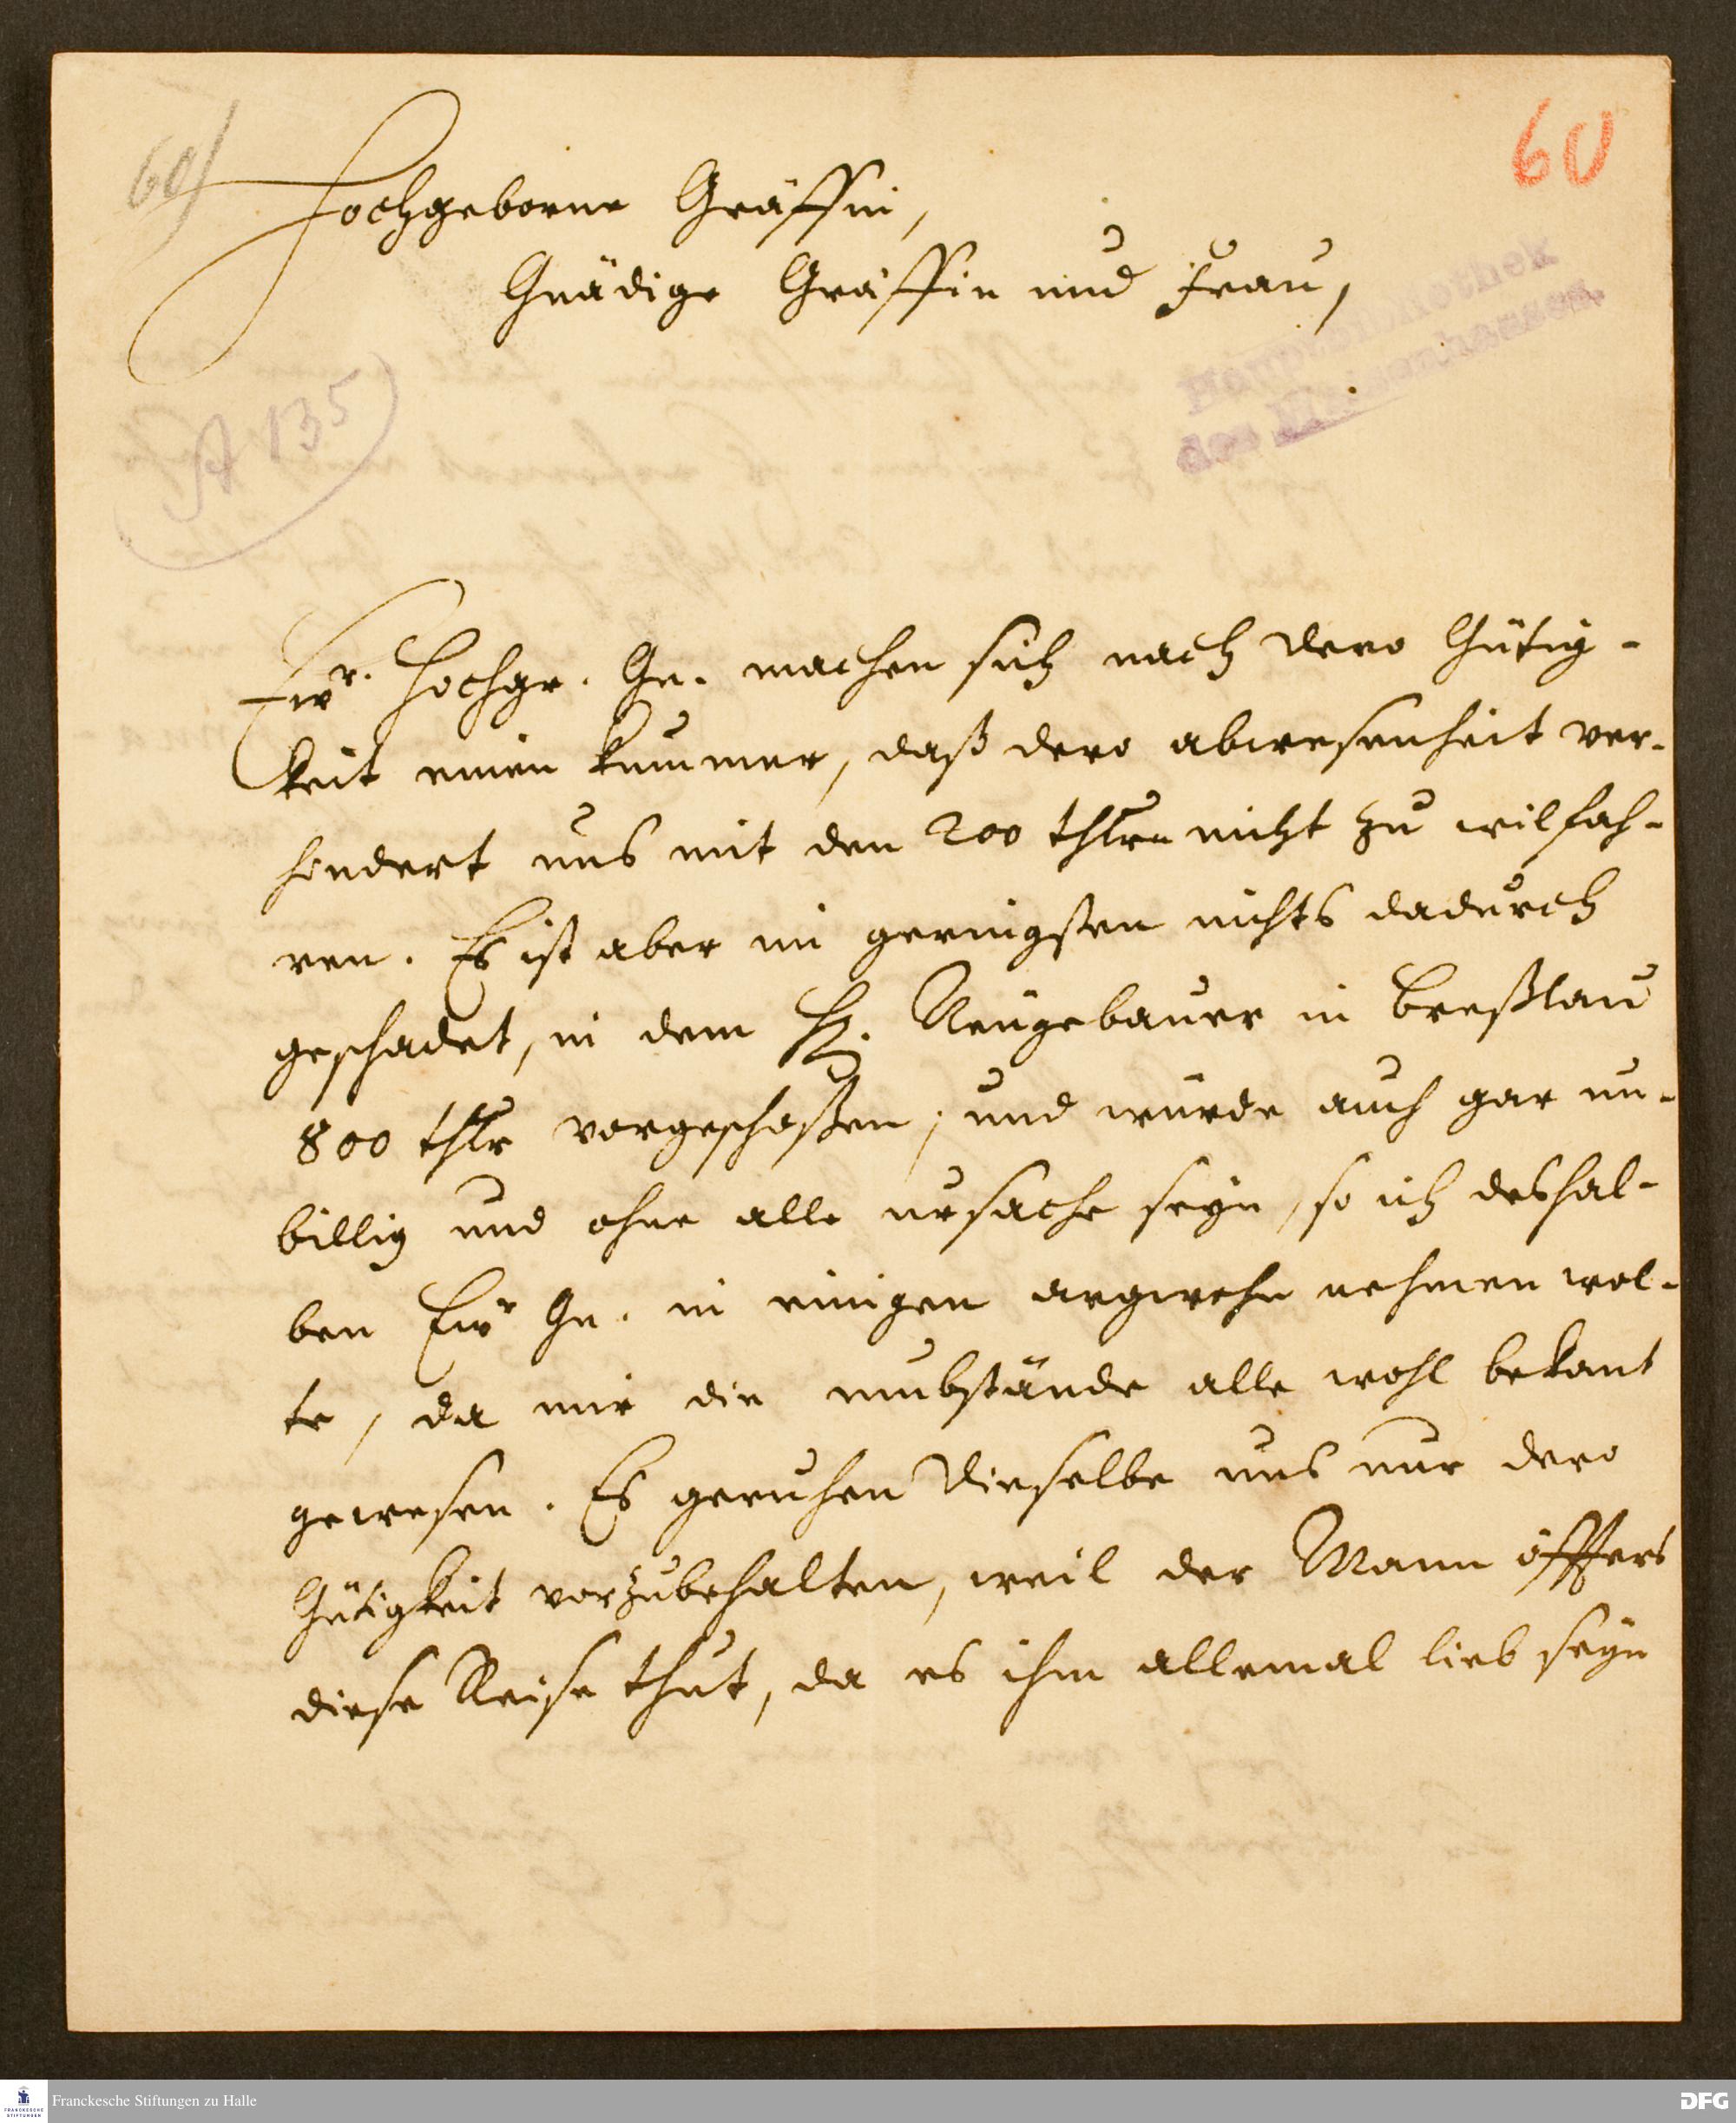 60)
60
Hochgeborne Gräffin,
Gnädige Gräffin und Frau,
Hauptbibliothek
des Waisenhauses.
A 135
Ewr. Hochgr. Gn. machen sich nach Dero Gütig-
keit einen kummer, daß dero abwesenheit ver-
hindert uns mit den 200 thlrn nicht zu wilfah-
ren. Es ist aber im geringsten nichts dadurch
geschadet, in dem H. Neugebauer in Breßlau
800 thlr vorgeschoßen; und würde auch gar un-
billig und ohne alle ursache seyn, so ich deshal-
ben Ewr Gn. in einigen argwohn nehmen wol-
te, da mir die umbstände alle wohl bekant
gewesen. Es geruhen Dieselbe uns nur dero
Gütigkeit vorzubehalten, weil der Mann öffters
diese Reise thut, da es ihm allemal lieb seyn
Franckesche Stiftungen zu Halle
DFG